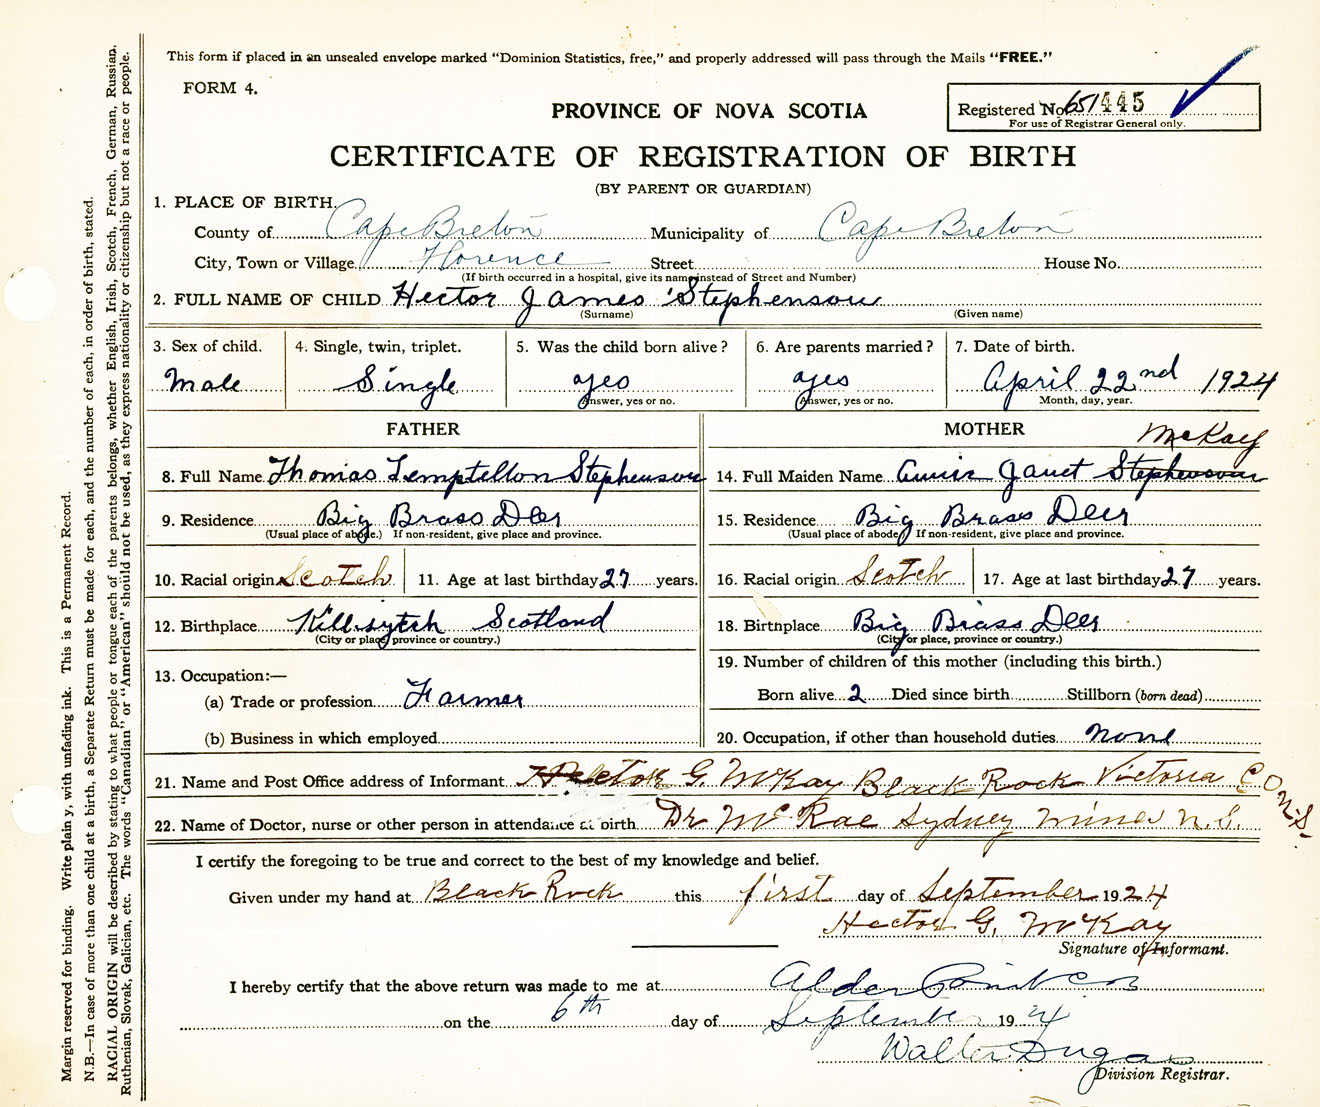 This form if placed in an unsealed envelope marked "Dominion Statistics, free," and properly addressed will pass through the Mails "FREE."
FORM 4.
PROVINCE OF NOVA SCOTIA
Registered No. 651445
For use of Registrar General only.
CERTIFICATE OF REGISTRATION OF BIRTH
(BY PARENT OR GUARDIAN)
1. PLACE OF BIRTH.
County of Cape Breton Municipality of Cape Breton
City, Town or Village Florence Street House No.
(If birth occurred in a hospital, give its name instead of Street and Number)
2. FULL NAME OF CHILD Hector James Stephenson
(Surname) (Given name)
3. Sex of child. 4. Single, twin, triplet. 5. Was the child born alive? 6. Are parents married? 7. Date of birth.
Male Single yes yes April 22nd 1924
Answer, yes or no. Answer, yes or no. Month, day, year.
FATHER MOTHER
McKay
8. Full Name Thomas Stephenson 14. Full Maiden Name Annie Janet Stephenson
9. Residence Big Brass Deer 15. Residence Big Brass Deer
(Usual place of abode.) If non-resident, give place and province. (Usual place of abode) If non-resident, give place and province.
10. Racial origin Scotch 11. Age at last birthday 27 years. 16. Racial origin Scotch 17. Age at last birthday 27 years.
12. Birthplace Killsytch Scotland 18. Birthplace Big Brass Deer
(City or place, province or country.) (City or place, province or country.)
19. Number of children of this mother (including this birth.)
13. Occupation:—
(a) Trade or profession Farmer Born alive 2 Died since birth Stillborn (born dead)
(b) Business in which employed 20. Occupation, if other than household duties. None
21. Name and Post Office address of Informant Hector G. McKay Black Rock Victoria CO N.S.
22. Name of Doctor, nurse or other person in attendance at birth Dr McRae Sydney Mines N.S.
I certify the foregoing to be true and correct to the best of my knowledge and belief.
Given under my hand at Black Rock this first day of September 1924
Hector G. McKay
Signature of Informant.
I hereby certify that the above return was made to me at Alder Point CB
on the 6th day of September 1924
Walter Dugas
Division Registrar.
Margin reserved for binding. Write plainly, with unfading ink. This is a Permanent Record.
N.B.—In case of more than one child at a birth, a Separate Return must be made for each, and the number of each, in order of birth, stated.
RACIAL ORIGIN will be described by stating to what people or tongue each of the parents belongs, whether English, Irish, Scotch, French, German, Russian,
Ruthenian, Slovak, Galician, etc. The words "Canadian" or "American" should not be used, as they express nationality or citizenship but not a race or people.